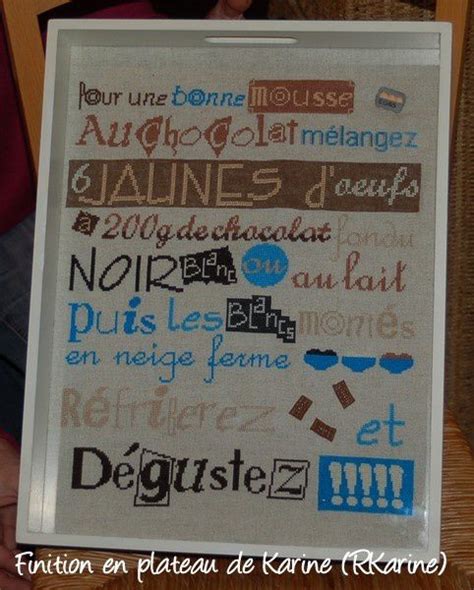 Pour une bonne mousse
Au chocolat mélangez
6 JAUNES d'oeufs
à 200g de chocolat fondu
NOIR Blanc ou au lait
Puis les Blancs montés
en neige ferme
Réfrigerez et
Dégustez !!!!!
Finition en plateau de Karine (RKarine)